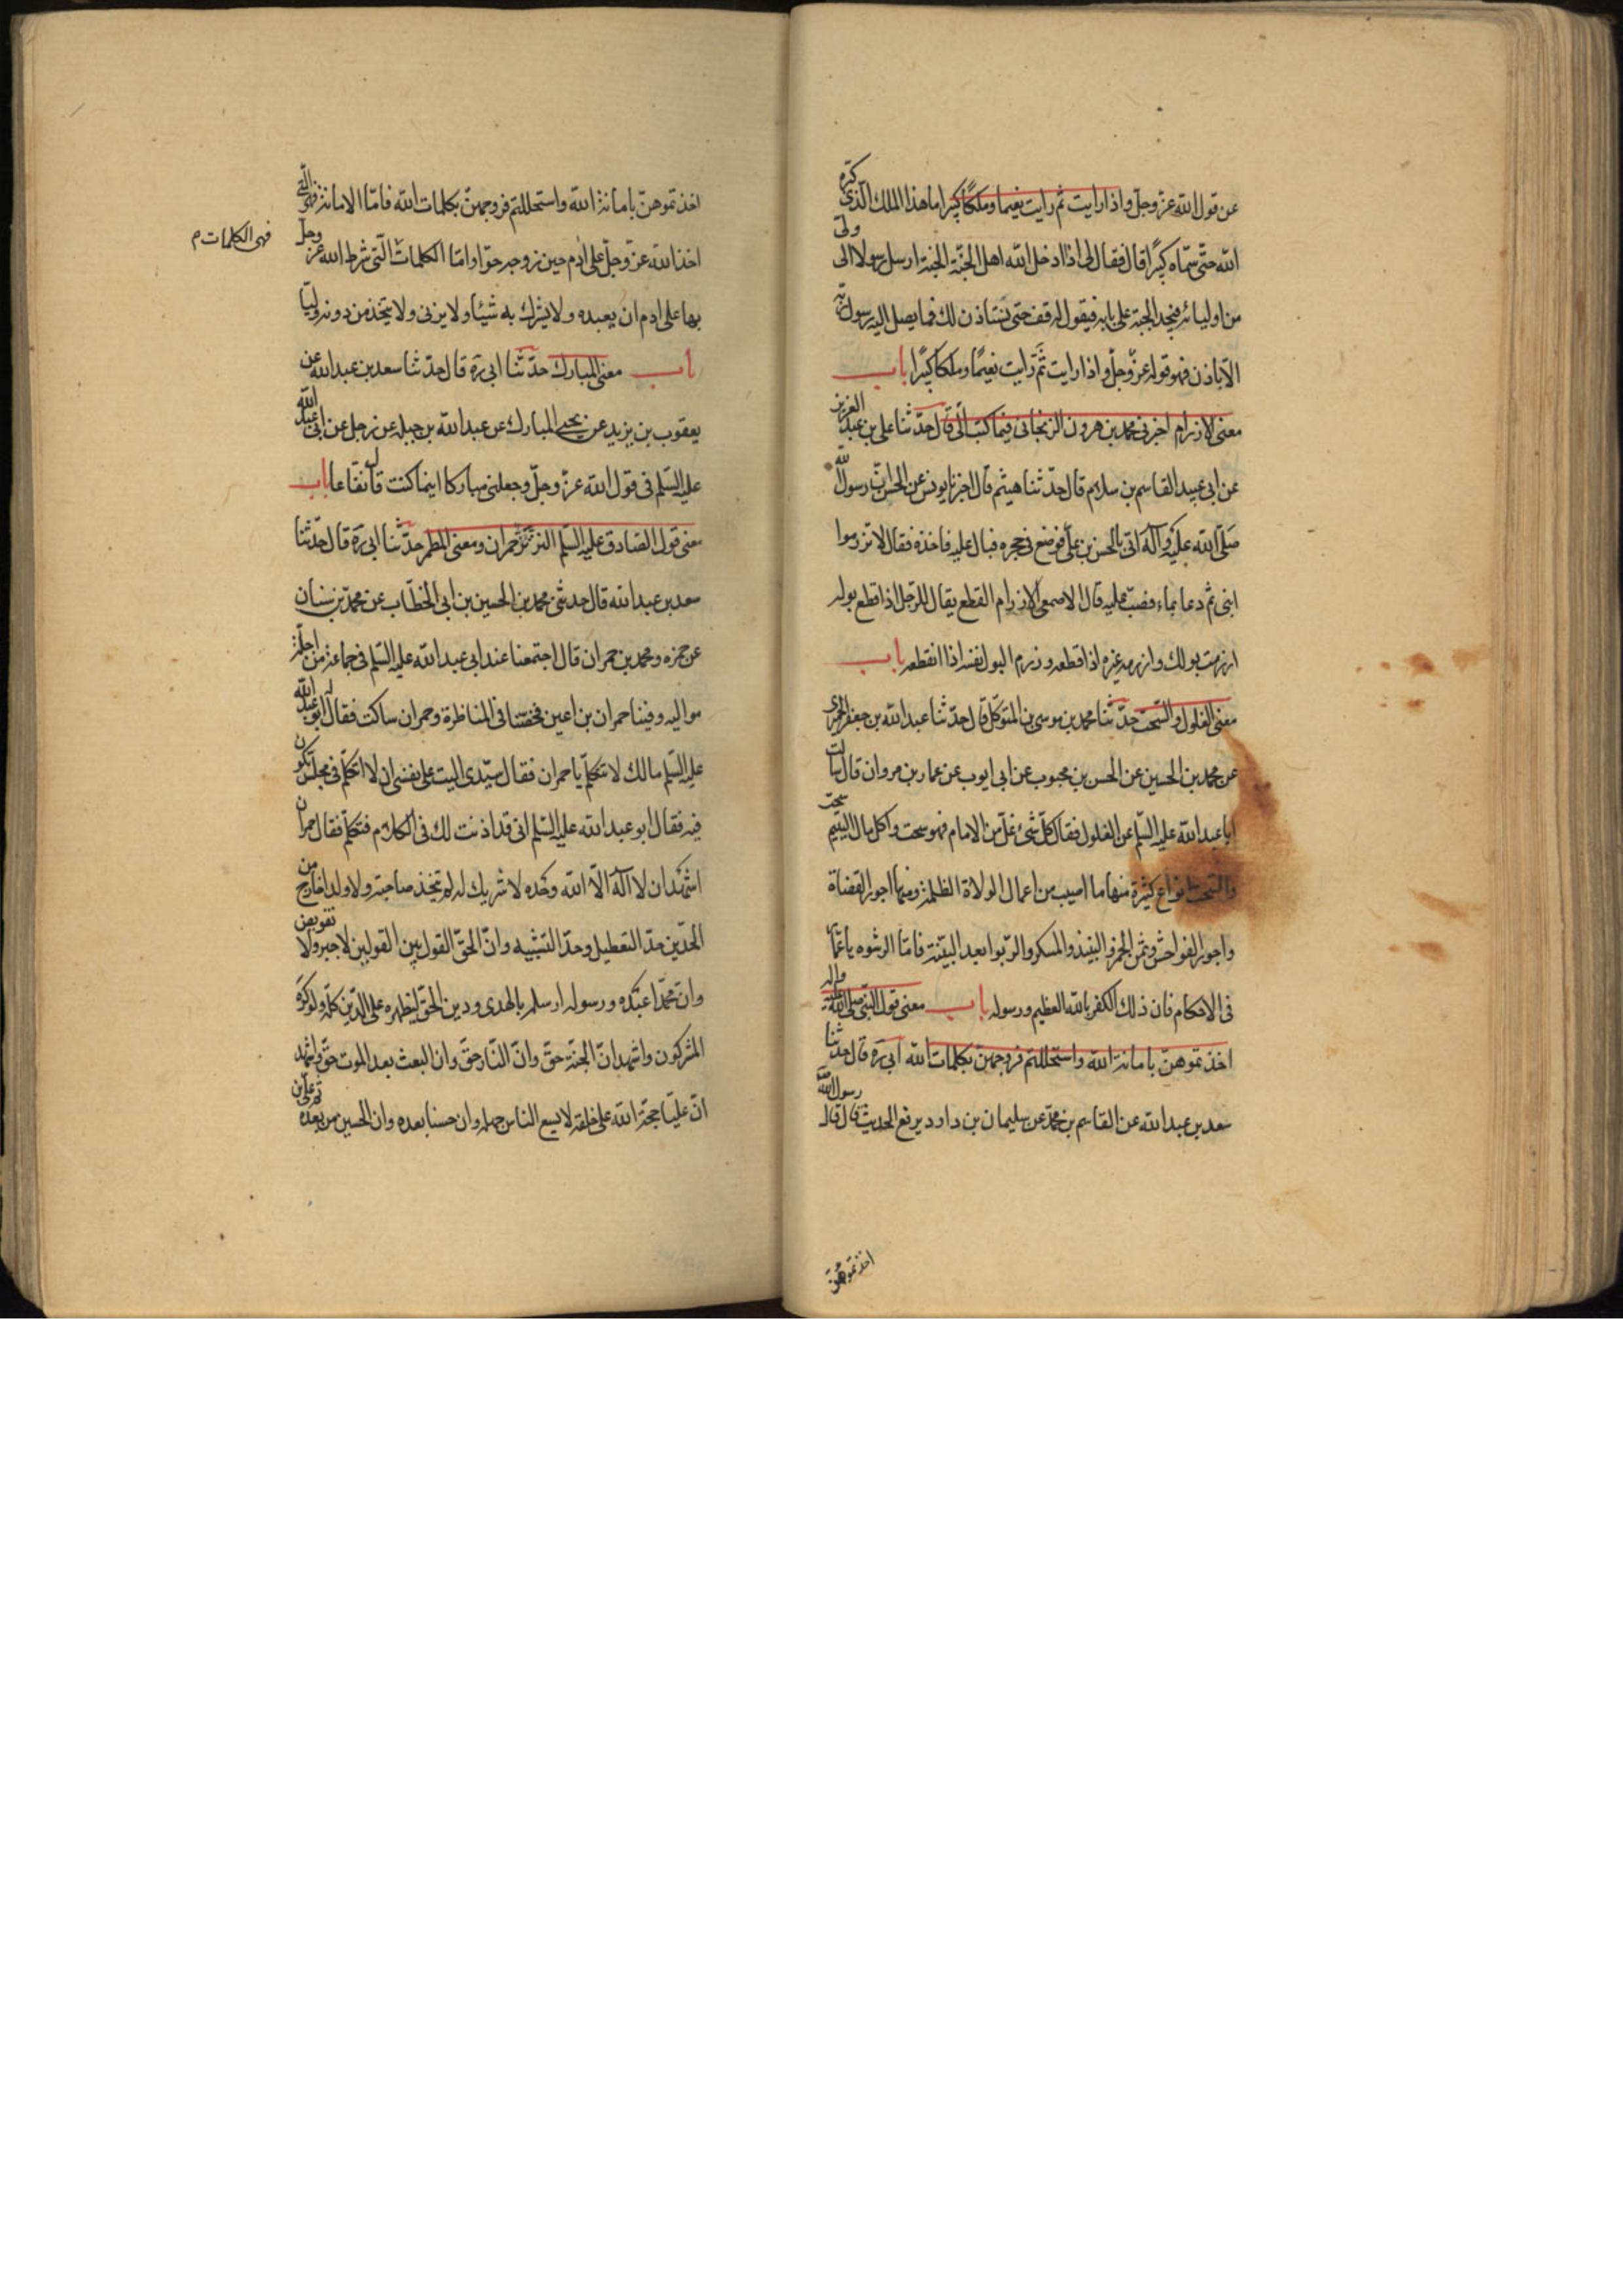 عن قول الله عز وجل واذا رايت ثم رايت نعيما وملكا كبيرا ما هذا الملك الّذى كبّره
الله حتّى سمّاه كبيرًا قال فقال لى اذا ادخل الله اهل الجنّة الجنة ارسل رسولا الى ولى
من اوليائه فيجد الحجبة على بابه فيقول له قف حتى نستاذن لك فما يصل اليه رسول ربّه
الّا باذن فهو قوله عزّ وجلّ واذا رايت ثَمَّ رايت نعيمًا وملكا كبيرًا باب
معنى الازرام اخبرنى محمد بن هرون الزنجانى فيما كتب الىّ قال حدّثنا على بن عبد العزيز
عن ابى عبيد القاسم بن سلام قال حدّثنا هيثم قال اخبرنا يونس عن الحسن انّ رسول الله
صلّى الله عليه وآله اتى بالحسن بن على فوضع فى حجره فبال عليه فاخذه فقال لا تزرموا
ابنى ثم دعا بماء فصبّ عليه قال الاصمعى الازرام القطع يقال للرّجل اذا قطع بوله
ازرمت بولك وازرمه غيره اذا قطعه وزرم البول نفسه اذا انقطع باب
معنى الغلول والسّحت حدّثنا محمد بن موسى بن المتوكّل قال حدّثنا عبد الله بن جعفر الحميرى
عن محمد بن الحسين عن الحسن بن محبوب عن ابى ايوب عن عمار بن مروان قال سالت
ابا عبد الله عليه السّلم عن الغلول فقال كلّ شىء غلّ من الامام فهو سحت واكل مال اليتيم سحت
والسّحت انواع كثيرة منها ما اصيب من اعمال الولاة الظلمة ومنها اجور القضاة
واجور الفواحش وثمن الخمر والنبيذ والمسكر والرّبوا بعد البيّنة فامّا الرشوه يا عمّار
فى الاحكام فان ذلك الكفر بالله العظيم ورسوله باب معنى قول النّبى صلى الله عليه واله
اخذتموهنّ بامانة الله واستحللتم فروجهنّ بكلمات الله ابى ره قال حدّثنا
سعد بن عبد الله عن القاسم بن محمّد عن سليمان بن داود يرفع الحديث قال قال رسول الله
اخذتموهنّ
اخذتموهنّ بامانة الله واستحللتم فروجهنّ بكلمات الله فامّا الامانة فهى الّتى
اخذ الله عزّ وجلّ على ادم حين زوجه حوّا وامّا الكلمات الّتى شرط الله عزّ وجلّ
فهى الكلمات م
بها على ادم ان يعبده ولا يشرك به شيئا ولا يزنى ولا يتخذ من دونه وليّا
باب معنى المبارك حدّثنا ابى ره قال حدّثنا سعد بن عبد الله عن
يعقوب بن يزيد عن يحيى المبارك عن عبد الله بن جبله عن رجل عن ابى عبد الله
عليه السّلم فى قول الله عزّ وجلّ وجعلنى مباركا اينما كنت قال نفّاعا باب
معنى قول الصّادق عليه السّلم التر تر حمران ومعنى المطمر حدّثنا ابى ره قال حدّثنا
سعد بن عبد الله قال حدثنى محمد بن الحسين بن ابى الخطّاب عن محمّد بن سنان
عن حمزه ومحمد بن حمران قال اجتمعنا عند ابى عبد الله عليه السّلم فى جماعة من اجلّة
مواليه وفينا حمران بن اعين فخضنا فى المناظرة وحمران ساكت فقال له ابو عبد الله
عليه السّلم مالك لا تتكلّم يا حمران فقال سيّدى اليت على نفسى ان لا اتكلّم فى مجلس تكون
فيه فقال ابو عبد الله عليه السّلم انى قد اذنت لك فى الكلام فتكلّم فقال حمران
اشهد ان لا اله الّا الله وحده لا شريك له لم يتخذ صاحبة ولا ولدا خارج من
الحدّين حدّ التعطيل وحدّ التشبيه وانّ الحقّ القول بين القولين لا جبر ولا تفويض
وانّ محمّدا عبده ورسوله ارسله بالهدى ودين الحقّ ليظهره على الدّين كلّه ولو كره
المشركون واشهد انّ الجنّة حقّ وانّ النّار حقّ وان البعث بعد الموت حقّ واشهد
انّ عليّا حجّة الله على خلقه لا يسع الناس جهله وان حسنا بعده وان الحسين من بعده ثم على بن